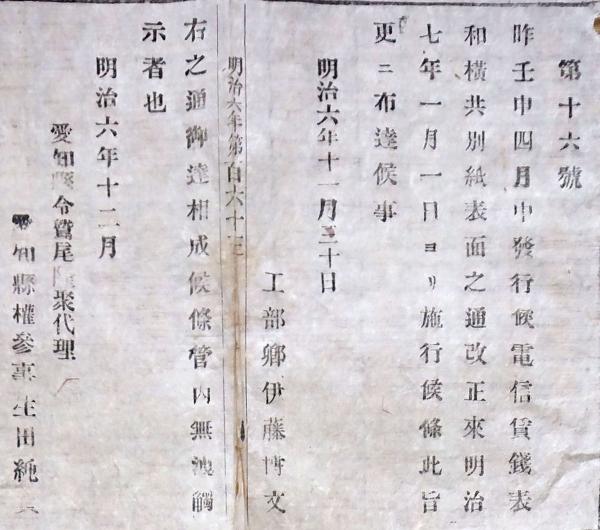 第十六號
昨壬申四月中發行候電信賃錢表
和橫共別紙表面之通改正來明治
七年一月一日ヨリ施行候條此旨
更ニ布達候事
明治六年十一月三十日
工部卿伊藤博文
明治六年第百六十三
右之通御達相成候條管內無洩觸
示者也
明治六年十二月
愛知縣令鷲尾隆聚代理
愛知縣權參事生田純